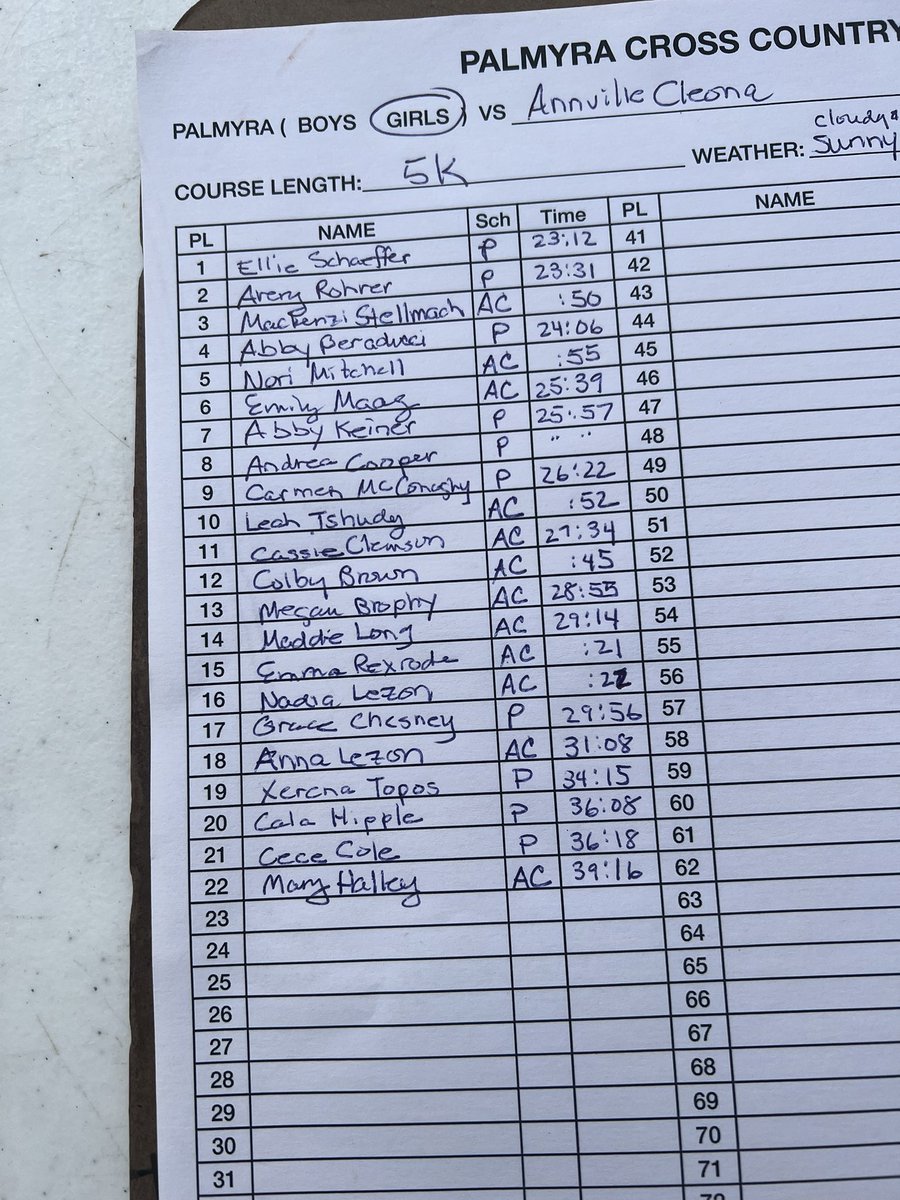 PALMYRA CROSS COUNTRY
PALMYRA ( BOYS GIRLS ) VS Annville Cleona
cloudy &
COURSE LENGTH: 5K WEATHER: Sunny
PL NAME Sch Time PL NAME
1 Ellie Schaeffer P 23:12 41
2 Avery Rohrer P 23:31 42
3 Mackenzi Stellmach AC :50 43
4 Abby Beraducci P 24:06 44
5 Nori Mitchell AC :55 45
6 Emily Maag AC 25:39 46
7 Abby Keiner P 25:57 47
8 Andrea Cooper P " " 48
9 Carmen McConaghy P 26:22 49
10 Leah Tshudy AC :52 50
11 Cassie Clemson AC 27:34 51
12 Colby Brown AC :45 52
13 Megan Brophy AC 28:55 53
14 Maddie Long AC 29:14 54
15 Emma Rexrode AC :21 55
16 Nadia Lezon AC :22 56
17 Grace Chesney P 29:56 57
18 Anna Lezon AC 31:08 58
19 Xerena Topos P 34:15 59
20 Cala Hipple P 36:08 60
21 Cece Cole P 36:18 61
22 Mary Halkey AC 39:16 62
23 63
24 64
25 65
26 66
27 67
28 68
29 69
30 70
31 71